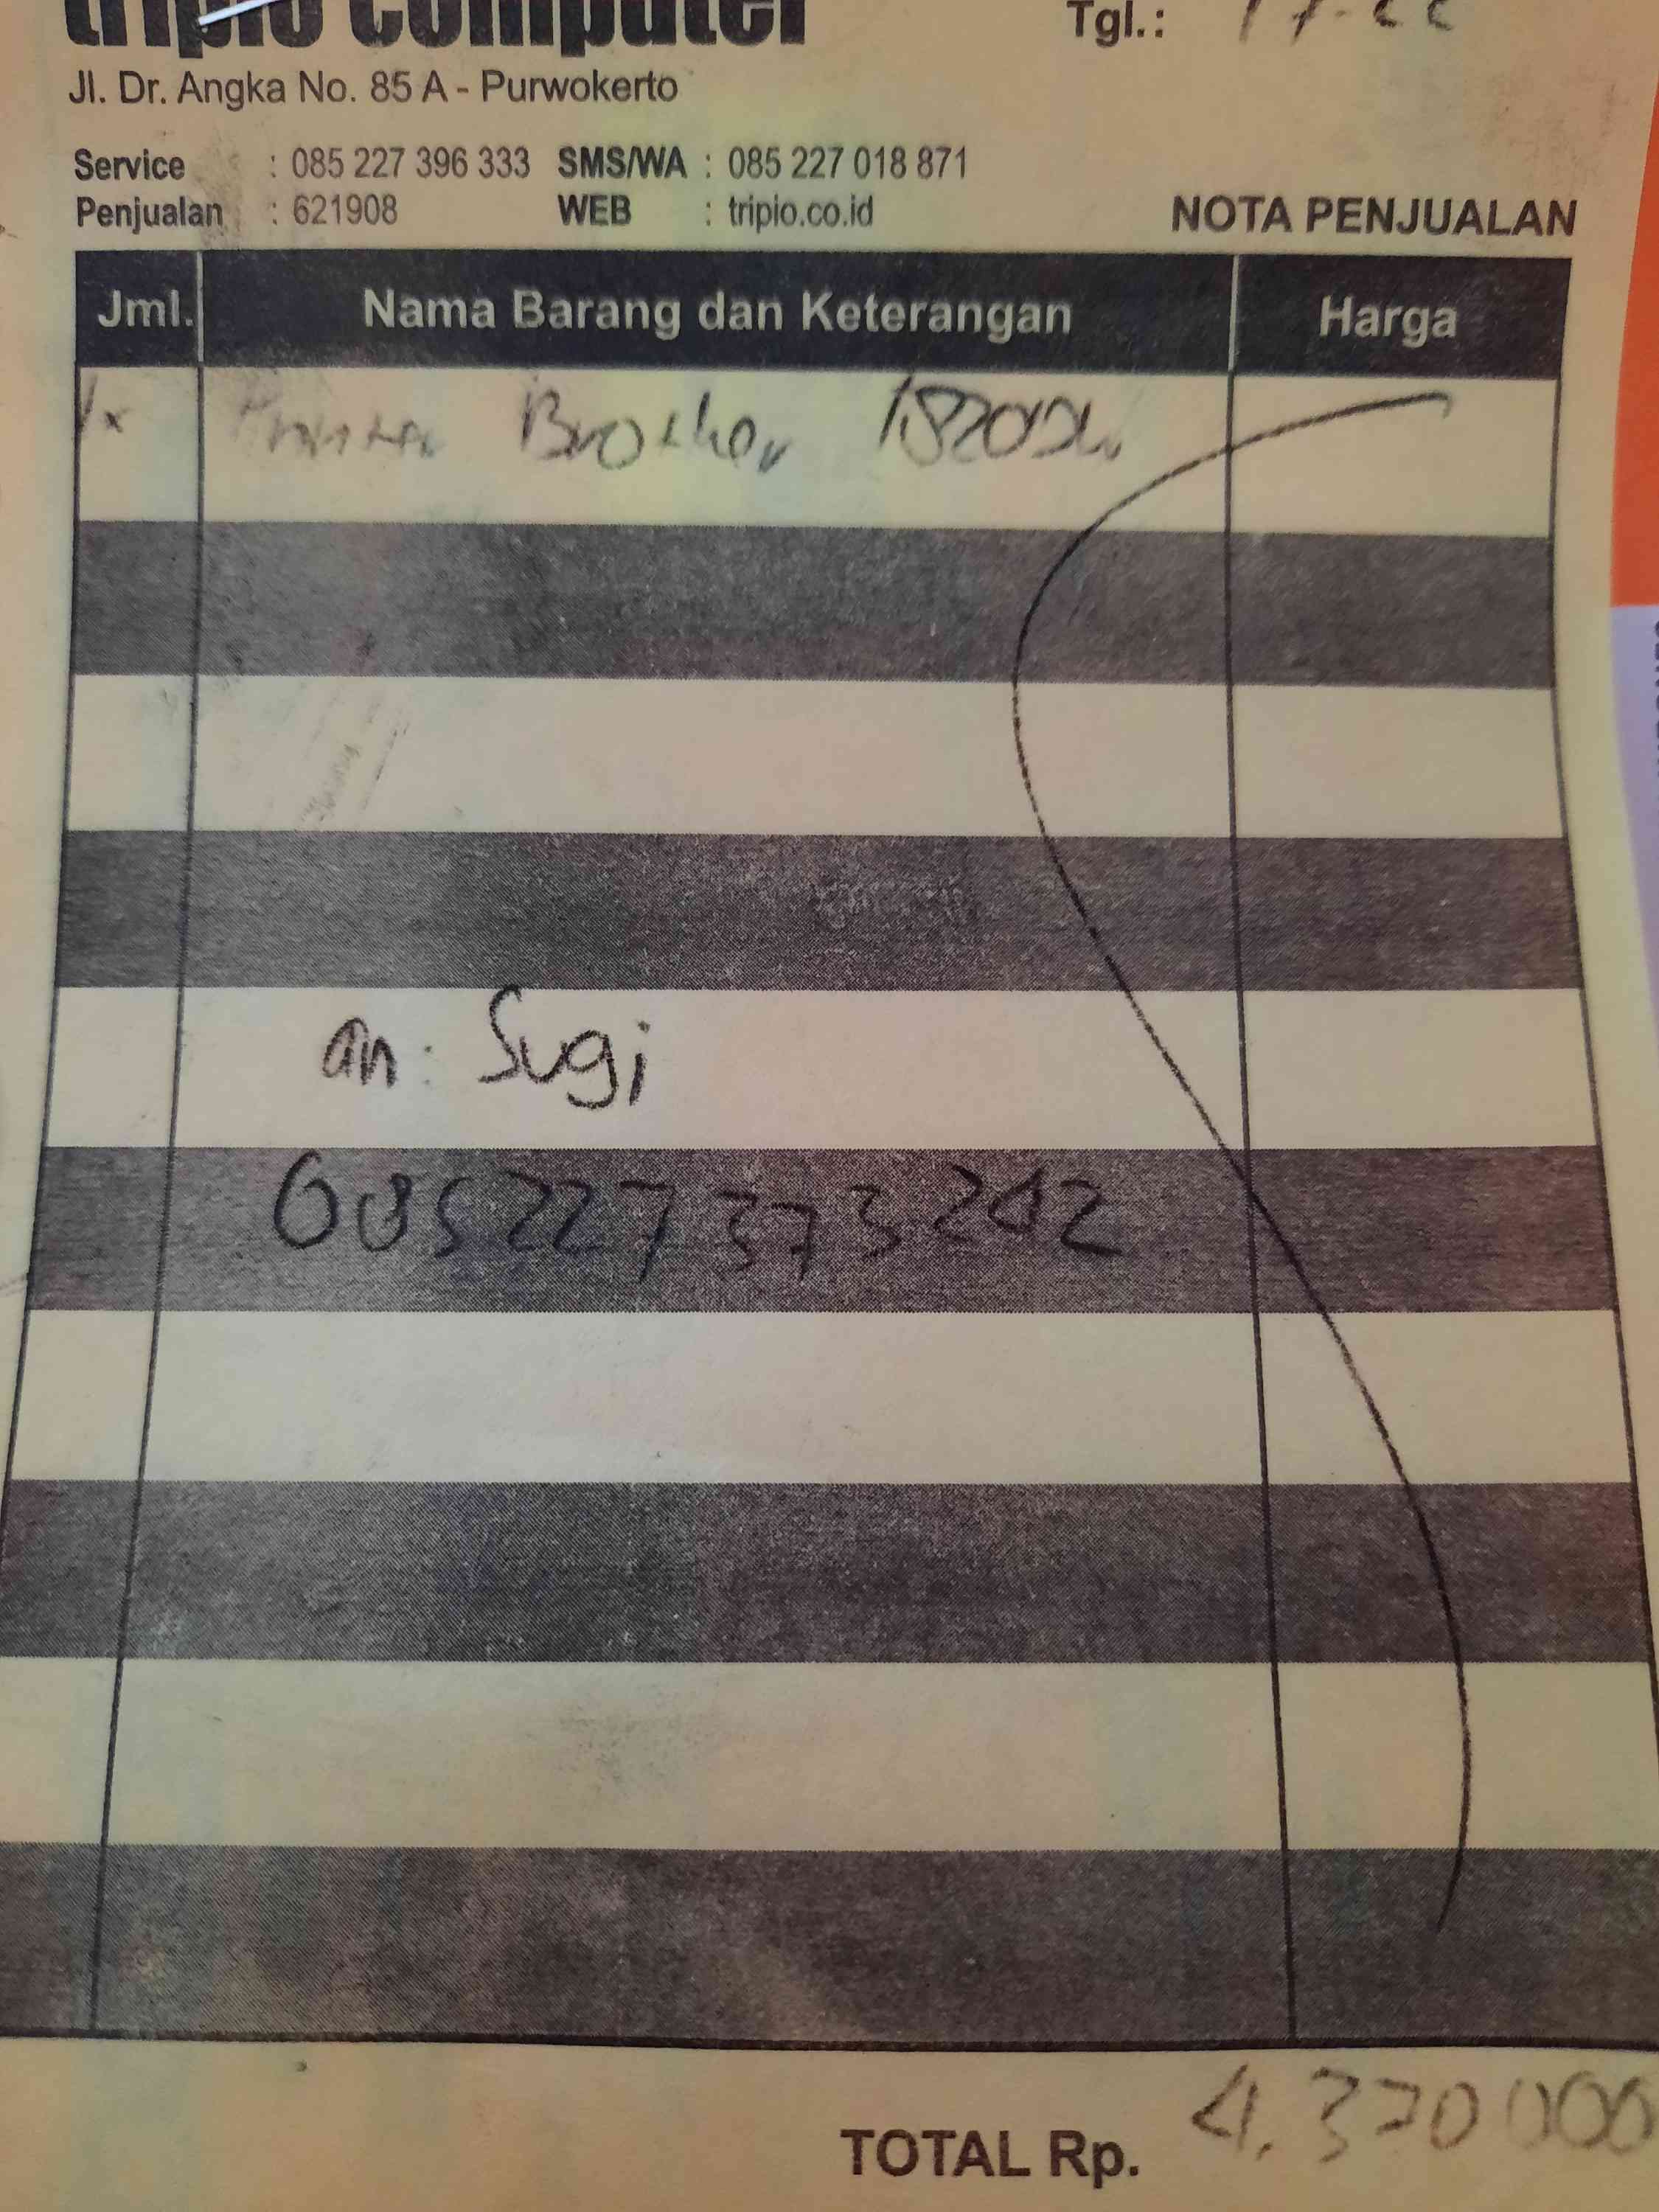 tripio computer Tgl.:
Jl. Dr. Angka No. 85 A - Purwokerto
Service : 085 227 396 333 SMS/WA : 085 227 018 871
Penjualan : 621908 WEB : tripio.co.id
NOTA PENJUALAN
Jml. Nama Barang dan Keterangan Harga
1x Printer Brother
an: Sugi
085227373242
TOTAL Rp. 4.370000